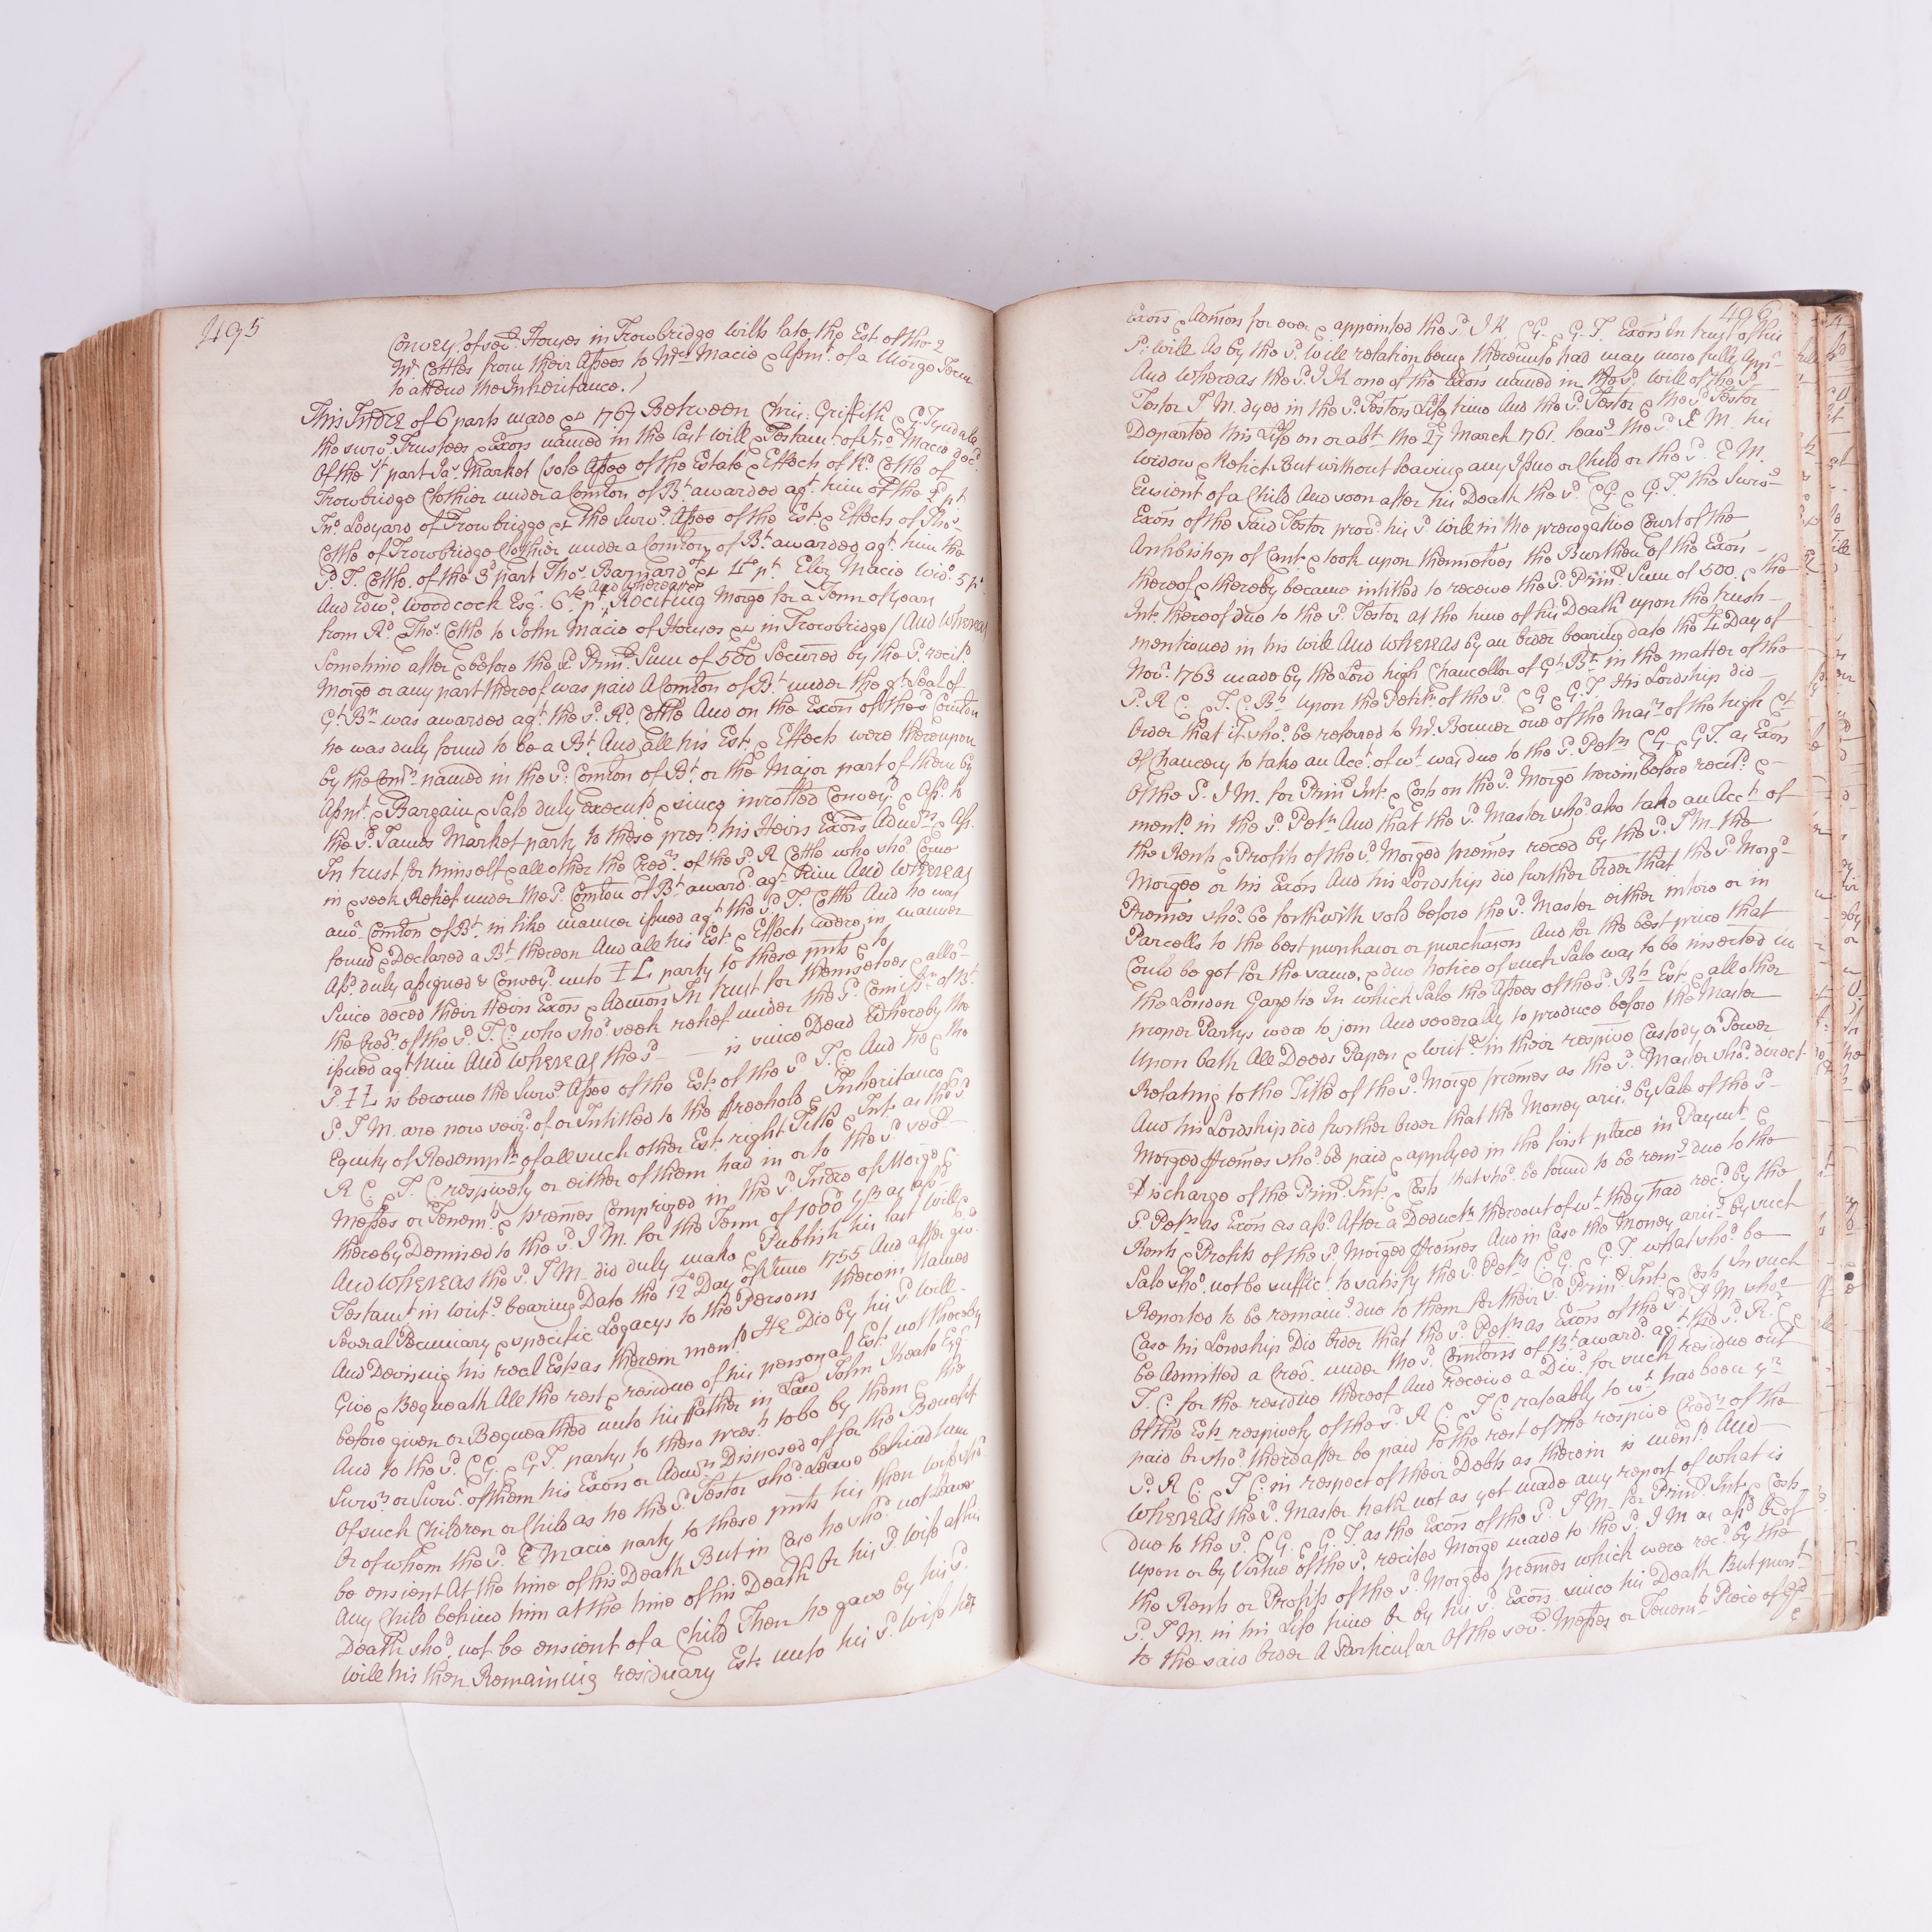 495
Convey.ce of sev.l Houses in Trowbridge Wilts late the Est. of the 2
Mr. Cottles from their Assees to Mrs. Macie & Assnt. of a Morge Term
to attend the Inheritance.)
This Indre of 6 parts made &c 1767 Between Chris: Griffith & G: Tyndale
the surv.g Trustees & Exors named in the last Will & Testamt. of Jno. Macie dec.d
Of the 1st part Jas. Market (sole Assee of the Estate & Effects of Rd. Cottle of
Trowbridge Clothier under a Comton of Bt. awarded agt. him of the 2d pt
Jno. Ledyard of Trowbridge &c the Surv.g Assee of the Est. & Effects of Thos.
Cottle of Trowbridge Clothier under a Comton of Bt. awarded agt. him the
Sd. T. Cottle of the 3d part Thos. Barnard of &c 4th pt. Eliz. Macie Wido. 5 pt
And Edwd. Woodcock Esqr. 6th pt. And Whereas Reciting Morge for a Term of Years
from Rd. Thos. Cottle to John Macie of Houses &c in Trowbridge / And Whereas
Sometime after & before the sd. Prinl. Sum of 500 Secured by the sd. recitd.
Morge or any part thereof was paid A Comton of Bt. under the gt. Seal of
Gt. Bn. was awarded agt. the sd. Rd. Cottle And on the Exon of the sd. Comton
he was duly found to be a Bt. And all his Est. & Effects were thereupon
by the Comrs. named in the sd. Comton of Bt. or the Major part of them by
Assnt. & Bargain & Sale duly execut.d & since inrolled Convey.d & Assd. to
the sd. James Market party to these presnts his Heirs Exors Admrs. & Ass.
In trust for himself & all other the Credrs. of the sd. R Cottle who shod. Come
in & seek Relief under the sd. Comton of Bt. award.d agt. him And Whereas
anor. Comton of Bt. in like manner issued agt. the sd. T. Cottle And he was
found & Declared a Bt. thereon And all his Est. & Effects were in manner
Assd. duly assigned & Convey.d unto I L party to these pnts & to
Since deced their Heirs Exors & Admors In trust for themselves & all o.r
the Credrs. of the sd. T. C. who shod. seek relief under the sd. Comissn. of Bt.
issued agt. him And Whereas the sd. — is since Dead Whereby the
Sd. I L is become the Surv.g Assee of the Est. of the sd. T. C. And he & the
Sd. J M. are now seiz.d of or Intitled to the freehold & Inheritance &
Equity of Redempn. of all such other Est. right Title & Int. as the sd
R C. & T. C. respively or either of them had in or to the sd. sev.l
Messes or Tenemts. & premes Comprized in the sd. Indre of Morge &
thereby Demised to the sd. J M. for the Term of 1000 yrs as afsd.
And Whereas the sd. J M. did duly make & Publish his last Will &
Testamt. in Writ.g bearing Date the 12th Day of June 1755 And after giv.g
Several Pecuniary & specific Legacys to the Persons therein Named
And Devising his real Ests. as therein mentd. He Did by his sd. Will
Give & Bequeath All the rest & residue of his personal Est. not thereby
before given or Bequeathed unto his Father in Law John Keate Esqr
And to the sd. C G. & G T. partys to these presnts. to be by them & the
Survrs. or Survr. of them his Exors or Admrs. Disposed of for the Benefit
Of such Children or Child as he the sd. Testor shod. Leave behind him
Or of whom the sd. E Macie party to these pnts his then wife shod.
be ensient At the time of his Death But in Case he shod. not Leave
Any Child behind him at the time of his Death Or his sd. Wife at his
Death shod. not be ensient of a Child Then he gave by his sd.
Will his then Remaining residuary Est. unto his sd. Wife her
496
Exors & Admors for ever & appointed the sd. J K C G. & G. T. Exors In trust of his
Sd. Will As by the sd. Will relation being thereunto had may more fully Appr.
And Whereas the sd. J K one of the Exors named in the sd. Will of the sd.
Testor J M. dyed in the sd. Testors Life time And the sd. Testor the sd. Testor
Departed this Life on or abt. the 27 March 1761. leav.g the sd. E M. his
Widow & Relict But without leaving any Issue or Child or the sd. E M.
Ensient of a Child And soon after his Death the sd. C G. & G. T. the Surv.g
Exors of the Said Testor prov.d his sd Will in the prerogative Court of the
Archbishop of Cant. & took upon themselves the Burthen of the Exon
thereof & thereby became intitled to receive the sd. Prinl. Sum of 500 & the
Int. thereof due to the sd. Testor at the time of his Death upon the trusts
mentioned in his Will And Whereas by an Order bearing date the 4 Day of
Novr. 1763 made by the Lord high Chancellor of Gt. Bt. in the matter of the
Sd. R C. & T. C. Bts. upon the Petitn. of the sd. C G & G. T. His Lordship did
Order that it shod. be referred to Mr. Bonner one of the Masrs. of the high Ct
Of Chancery to take an Acct. of wt. was due to the sd. Petrs. C G & G T. as Exors
Of the Sd. J M. for Prinl. Int. & Costs on the sd. Morge hereinbefore recitd. &
mentd. in the sd. Petn. And that the sd. Master shod. also take an Acct. of
the Rents & Profits of the sd. Morged premes reced by the sd. J M. the
Morgee or his Exors And his Lordship did further Order that the sd. Morgd.
Premes shod. be forthwith sold before the sd. Master either intire or in
Parcells to the best purchasor or purchasors And for the best price that
Could be got for the same, & due Notice of such Sale was to be inserted in
the London Gazette In which Sale the Assees of the sd. Bts. Est. & all other
proper Partys were to join And severally to produce before the Master
Upon Oath All Deeds Papers & Writgs. in their respive Custody or Power
Relating to the Title of the sd. Morge premes as the sd. Master shod. direct
And his Lordship did further Order that the Money aris.g by Sale of the sd.
Morged premes shod. be paid & applyed in the first place in Paymt. &
Discharge of the Prinl. Int. & Costs that shod. be found to be rem.g due to the
Sd. Petrs. as Exors as afsd. After a Deductn. thereout of wt. they had recd. by the
Rents & Profits of the sd. Morged premes And in Case the Money aris.g by such
Sale shod. not be suffict. to satisfy the sd. Petrs. C. G. & G. T. what shod. be
Reported to be remain.g due to them for their sd. Prinl. Int. & Costs In such
Case his Lordship Did Order that the sd. Petrs. as Exors of the sd. J M. shod.
be Admitted a Cred.r under the sd. Comtons of Bt. award.d agt. the sd. R. C. &
T. C. for the residue thereof And receive a Divd. for such residue out
Of the Ests. respively of the sd. R C. & T C. rateably to wt. had been yn
paid or shod. thereafter be paid to the rest of the respive Credrs. of the
Sd. R C. & T C. in respect of their Debts as therein is mentd. And
Whereas the sd. Master hath not as yet made any report of what is
due to the sd. C G. & G. T. as the Exors of the sd. J M. for Prinl. Int. & Costs
Upon or by Virtue of the sd. recited Morge made to the sd. J M as afsd. or of
the Rents or Profits of the sd. Morged premes which were recd. by the
Sd. J M. in his Life time or by his sd. Exors. since his Death But pursut.
to the said Order A Particular Of the sev.l Messes or Tenemts. Piece of Grd.